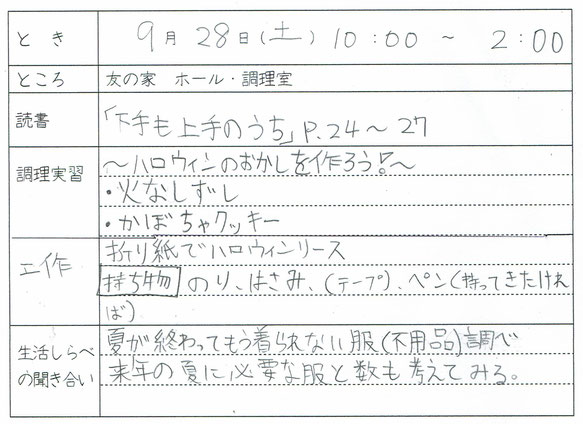 とき 9月28日(土) 10:00 ~ 2:00
ところ 友の家 ホール・調理室
読書 「下手も上手のうち」P.24~27
調理実習 ~ハロウィンのおかしを作ろう!~
・火なしずし
・かぼちゃクッキー
工作 折り紙でハロウィンリース
持ち物 のり、はさみ、(テープ)、ペン(持ってきたけれ
ば)
生活しらべ 夏が終わってもう着られない服(不用品)調べ
の聞き合い 来年の夏に必要な服と数も考えてみる。